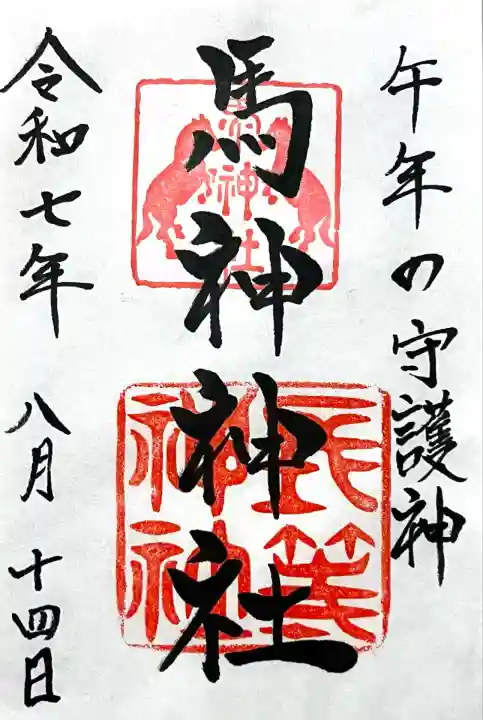 午年の守護神
馬神神社
馬神神社
令和七年 八月 十四日